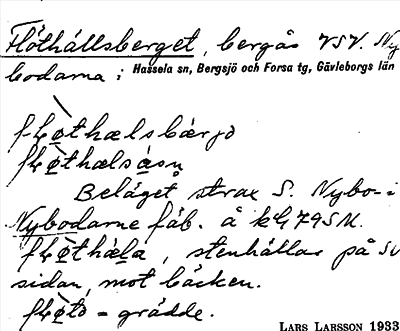 Flöthällsberget, bergås VSV. Ny
bodarna i Hassela sn, Bergsjö och Forsa tg, Gävleborgs län
fløthælsbärjə
fløthælsåsn
Beläget strax S. Nybo-i
Nybodarne fäb. å kG79SU.
fløthæla, stenhällar på SV
sidan, mot bäcken.
fløtə = grädde.
LARS LARSSON 1933